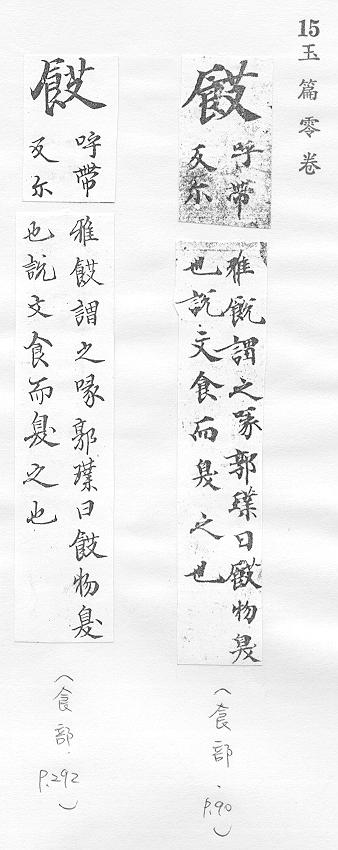 15 玉篇零卷
餀
呼帶
反尓
雅餀謂之喙郭璞曰餀物臭
也說文食而臭之也
(食部.P.90)
餀
呼帶
反尓
雅餀謂之喙郭璞曰餀物臭
也說文食而臭之也
(食部.P.292)